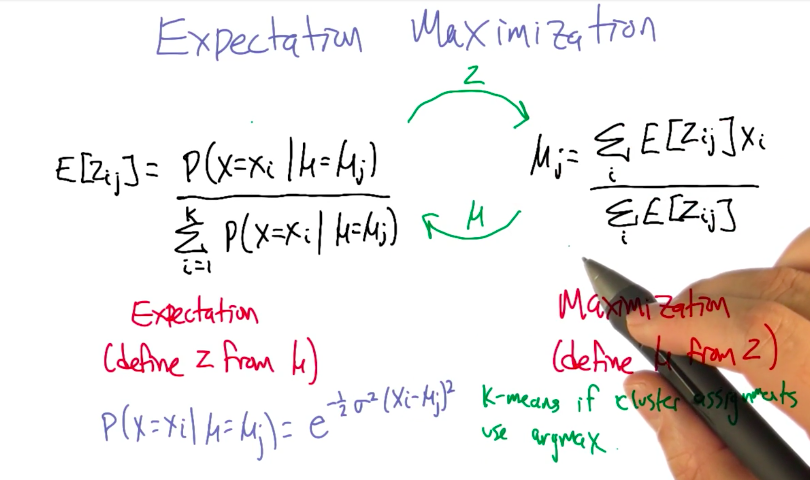 Expectation Maximization
Z
E[Zij] = P(X=xi | μ=μj) / Σ_{i=1}^{K} P(X=xi | μ=μj)
μj = Σ_i E[Zij] xi / Σ_i E[Zij]
μ
Expectation
(define Z from μ)
Maximization
(define μ from Z)
P(X=xi | μ=μj) = e^{-1/2 σ² (xi-μj)²}
K-means if cluster assignments
use argmax.